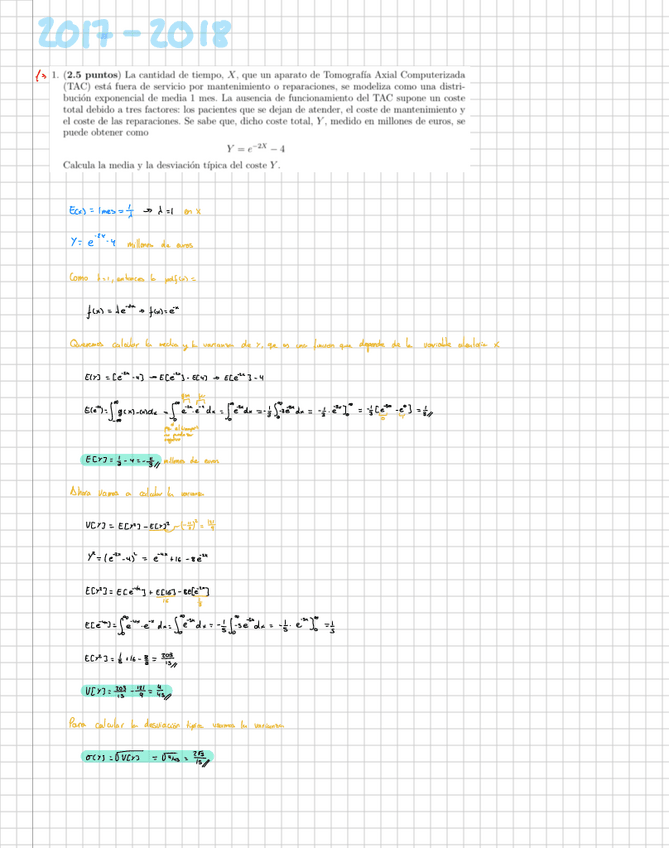 2017-2018
1. (2.5 puntos) La cantidad de tiempo, X, que un aparato de Tomografía Axial Computerizada
(TAC) está fuera de servicio por mantenimiento o reparaciones, se modeliza como una distri-
bución exponencial de media 1 mes. La ausencia de funcionamiento del TAC supone un coste
total debido a tres factores: los pacientes que se dejan de atender, el coste de mantenimiento y
el coste de las reparaciones. Se sabe que, dicho coste total, Y, medido en millones de euros, se
puede obtener como
Y = e^{-2X} − 4
Calcula la media y la desviación típica del coste Y.
E(x) = 1 mes = 1/λ → λ=1 en X
Y = e^{-2x} - 4 millones de euros
Como λ=1, entonces la
f(x) = λe^{-λx} → f(x) = e^{-x}
Queremos calcular la media y la varianza de Y, que es una función que depende de la variable aleatoria X
E(Y) = [e^{-2x} - 4] → E[e^{-2x}] - E[4] → E[e^{-2x}] - 4
= ∫ g(x)·f(x)dx = ∫_0^∞ e^{-2x}·e^{-x} dx = ∫_0^∞ e^{-3x} dx = -1/3 ∫_0^∞ -3e^{-3x} dx = -1/3 · e^{-3x}]_0^∞ = -1/3 [e^{-∞} - e^0] = 1/3
E[Y] = 1/3 - 4 = -11/3 millones de euros
Ahora vamos a calcular la varianza
V[Y] = E[Y²] - E[Y]² → (-11/3)² = 121/9
Y² = (e^{-2x} - 4)² = e^{-4x} + 16 - 8e^{-2x}
E[Y²] = E[e^{-4x}] + E[16] - 8E[e^{-2x}]
16 1/3
E[e^{-4x}] = ∫_0^∞ e^{-4x}·e^{-x} dx = ∫_0^∞ e^{-5x} dx = -1/5 ∫_0^∞ -5e^{-5x} dx = -1/5 · e^{-5x}]_0^∞ = 1/5
E[Y²] = 1/5 + 16 - 8/3 = 203/15
V[Y] = 203/15 - 121/9 = 4/45
Para calcular la desviación típica usamos la varianza
σ(Y) = √V[Y] = √4/45 = 2√5/15